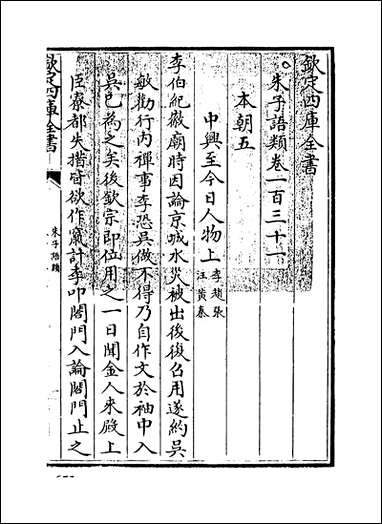 欽定四庫全書
朱子語類卷一百三十一
本朝五
中興至今日人物上李趙張汪黃秦
李伯紀徽廟時因論京城水災被出後復召用遂約吳
敏勸行内禪事李恐吳做不得乃自作文於袖中入
吳已為之矣後欽宗即位用之一日聞金人來殿上
臣寮都失措皆欲作竄計李叩閤門入論閤門止之
欽定四庫全書
朱子語類
一